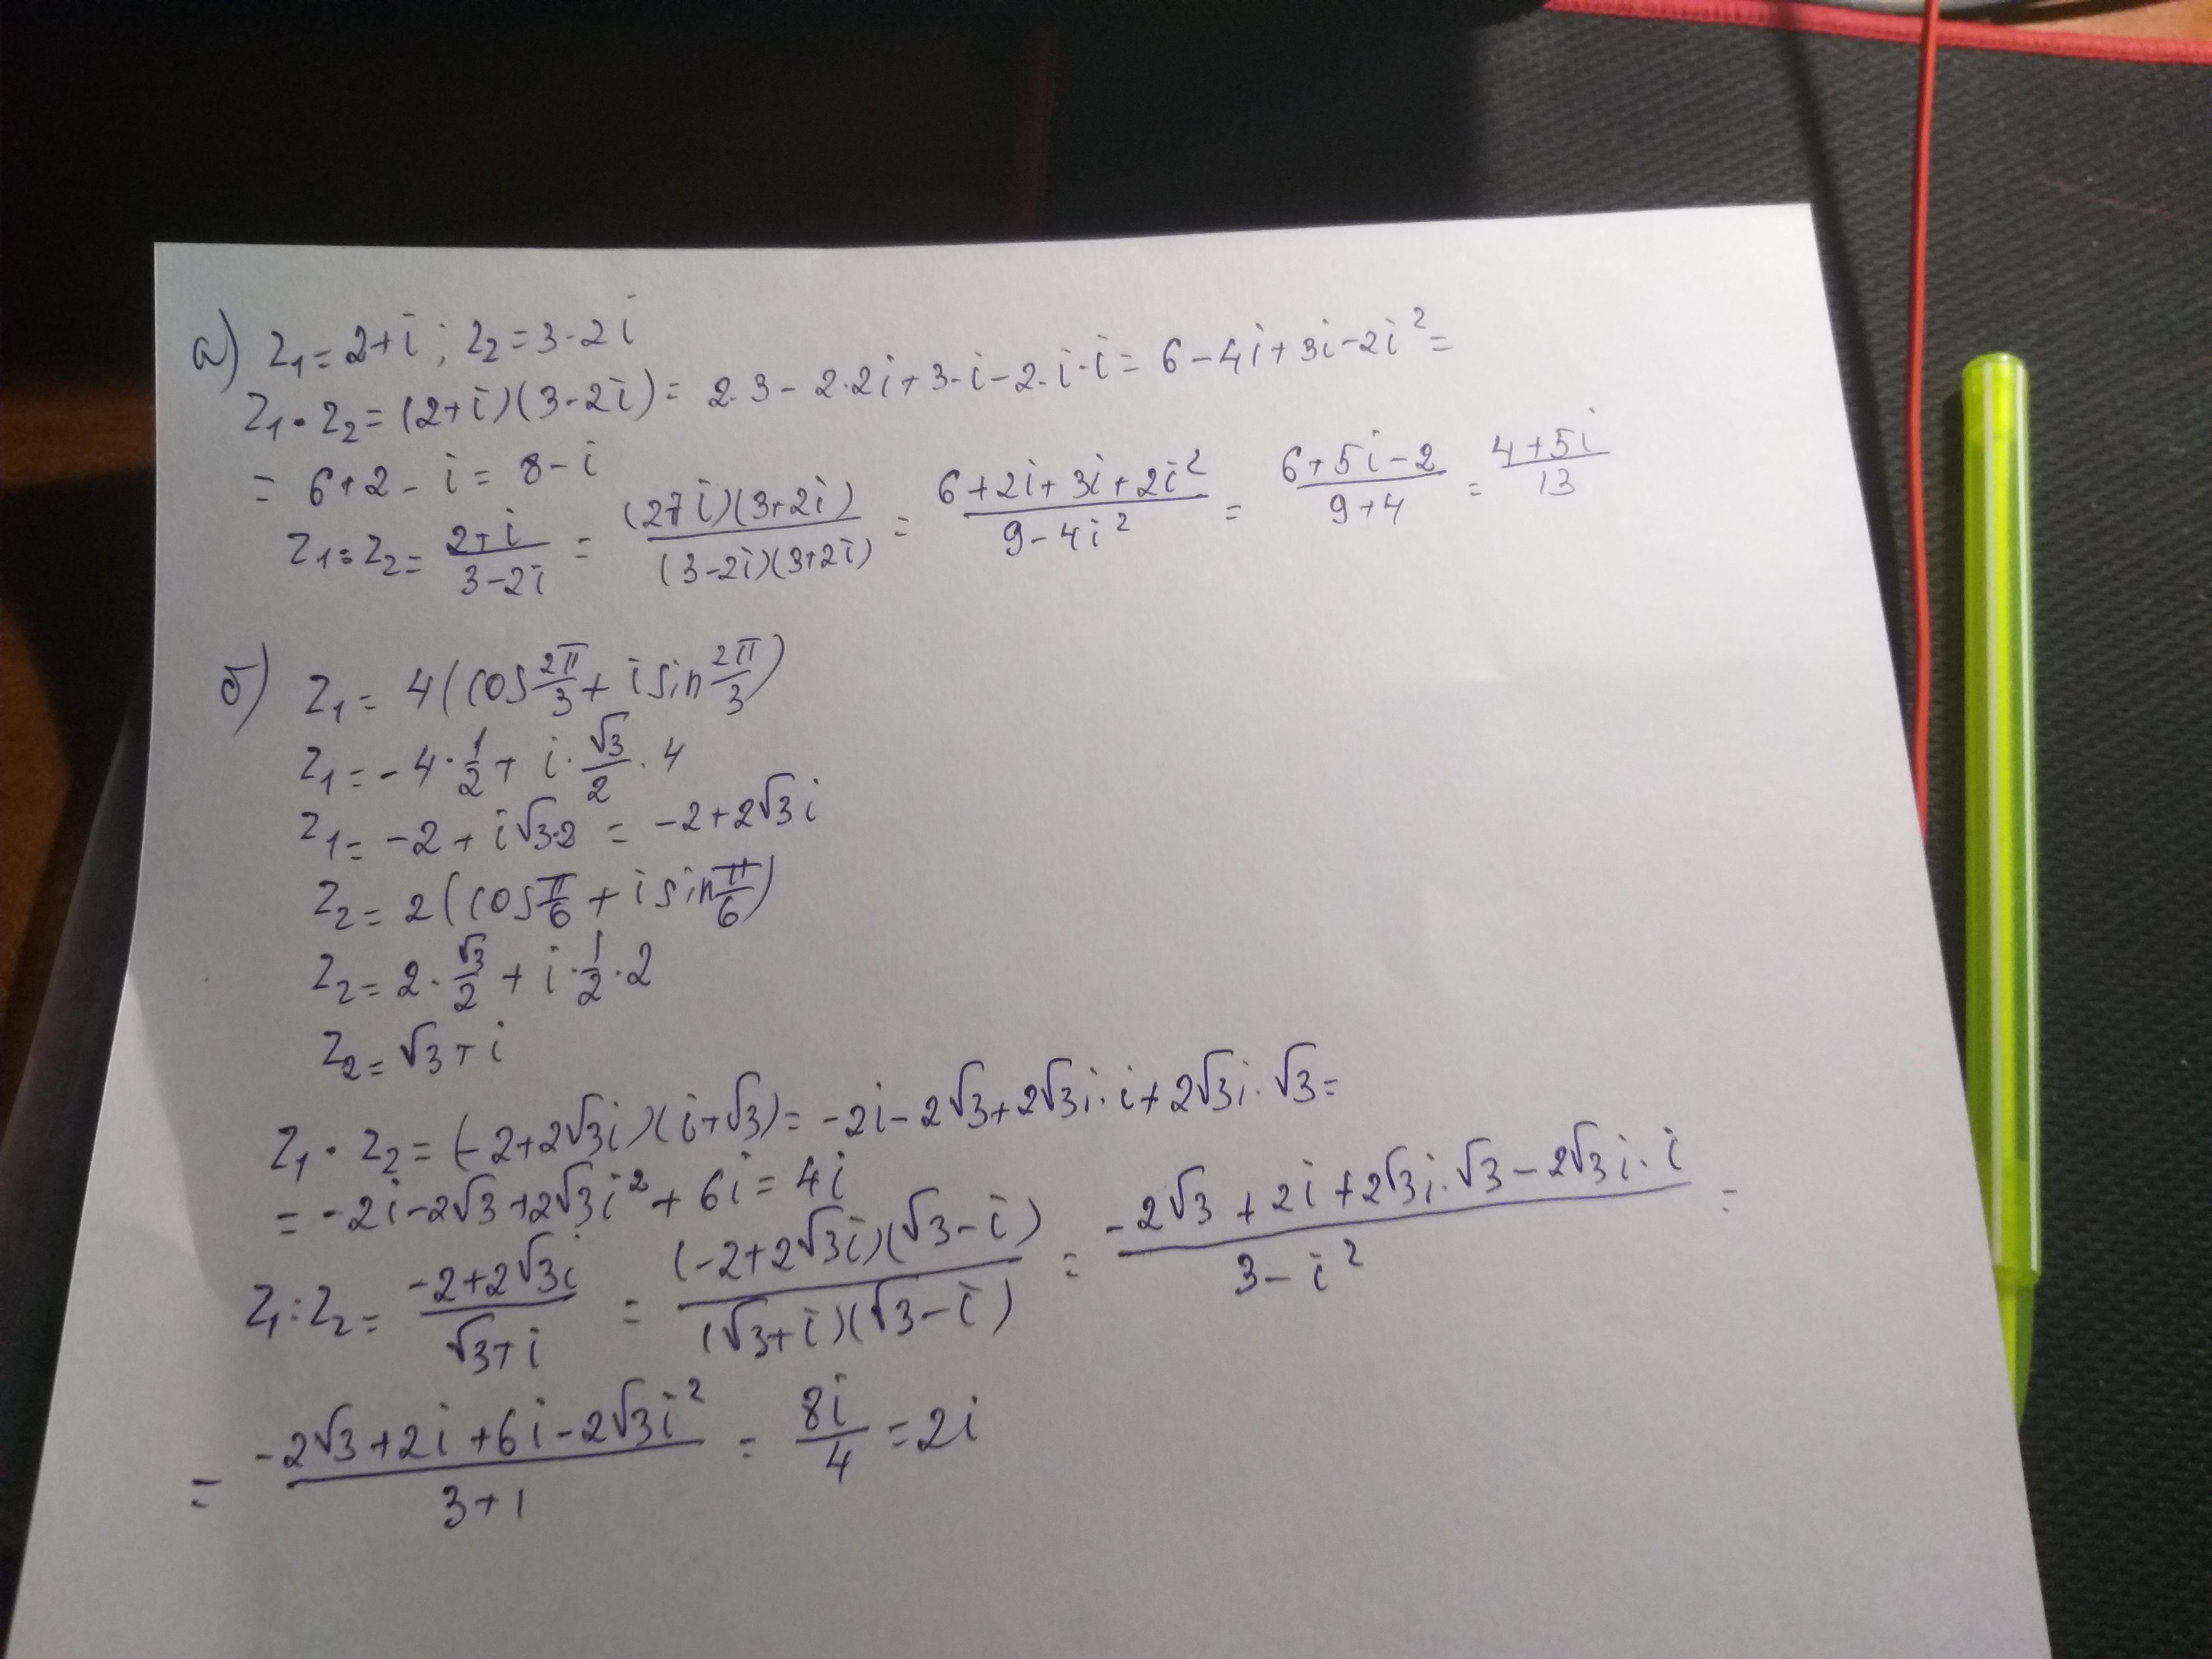 а) z₁ = 2+i; z₂ = 3-2i
z₁·z₂ = (2+i)(3-2i) = 2·3 - 2·2i + 3·i - 2·i·i = 6 - 4i + 3i - 2i² =
= 6+2 - i = 8 - i
z₁:z₂ = (2+i)/(3-2i) = ((2+i)(3+2i))/((3-2i)(3+2i)) = (6+2i+3i+2i²)/(9-4i²) = (6+5i-2)/(9+4) = (4+5i)/13
б) z₁ = 4(cos 2π/3 + i sin 2π/3)
z₁ = -4·1/2 + i·√3/2·4
z₁ = -2 + i√3·2 = -2+2√3i
z₂ = 2(cos π/6 + i sin π/6)
z₂ = 2·√3/2 + i·1/2·2
z₂ = √3 + i
z₁·z₂ = (-2+2√3i)(i+√3) = -2i - 2√3 + 2√3i·i + 2√3i·√3 =
= -2i - 2√3 + 2√3i² + 6i = 4i
z₁:z₂ = (-2+2√3i)/(√3+i) = ((-2+2√3i)(√3-i))/((√3+i)(√3-i)) = (-2√3+2i+2√3i·√3-2√3i·i)/(3-i²) =
= (-2√3+2i+6i-2√3i²)/(3+1) = 8i/4 = 2i